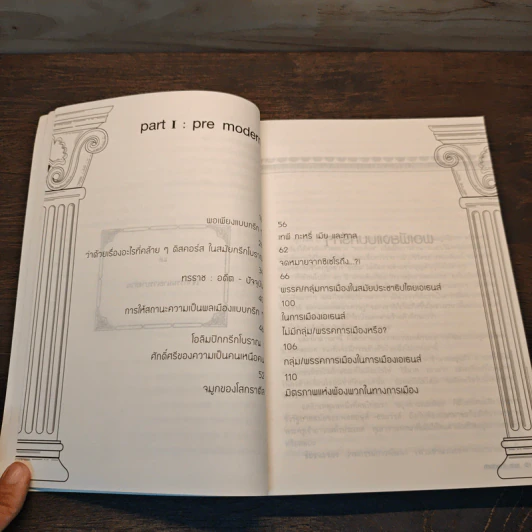 part I : pre modern
พอเพียงแบบกรีก
ว่าด้วยเรื่องอะไรที่คล้าย ๆ ดิสคอร์ส ในสมัยกรีกโบราณ
ทรราช : อดีต - ปัจจุบัน
การให้สถานะความเป็นพลเมืองแบบกรีก
โอลิมปิกกรีกโบราณ
ศักดิ์ศรีของความเป็นคนเหนือคน
52
จมูกของโสกราตีส
56
เทพี กะหรี่ เมีย และทาส
62
จดหมายจากซิเซโรถึง..?!
66
พรรค/กลุ่มการเมืองในสมัยประชาธิปไตยเอเธนส์
100
ในการเมืองเอเธนส์
ไม่มีกลุ่ม/พรรคการเมืองหรือ?
106
กลุ่ม/พรรคการเมืองในการเมืองเอเธนส์
110
มิตรภาพแห่งพ้องพวกในทางการเมือง